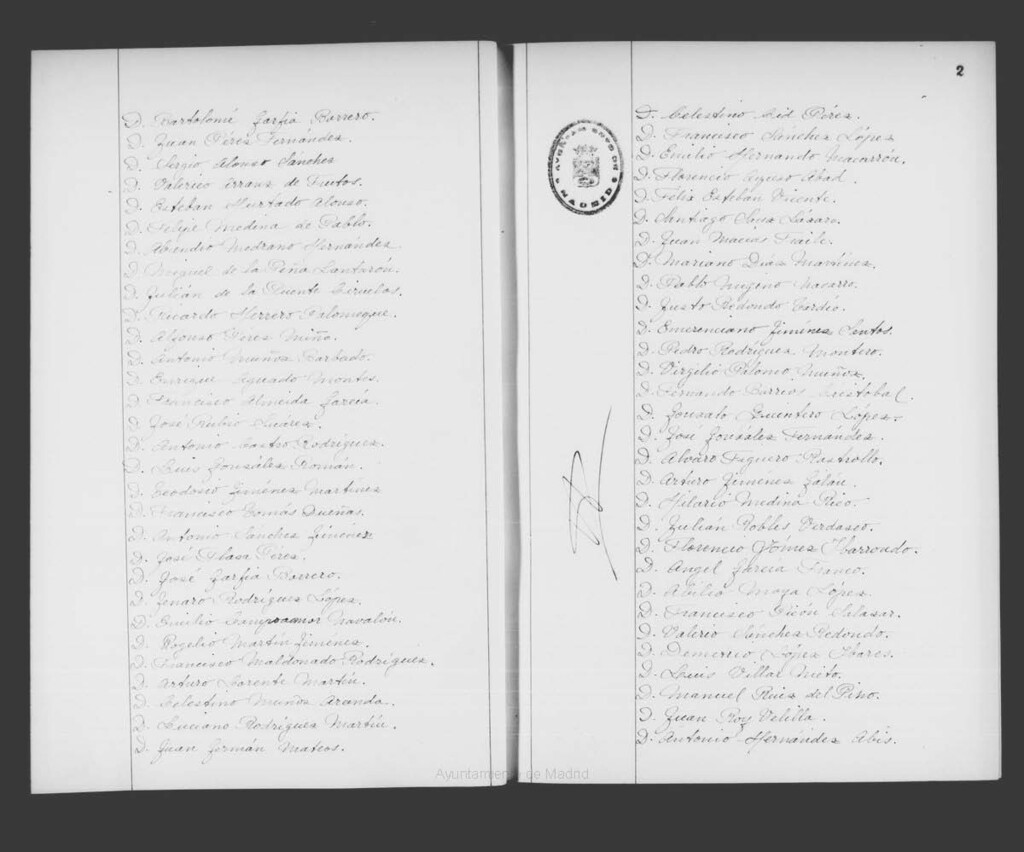 D. Bartolomé Garfia Barrero.
D. Juan Pérez Fernández.
D. Sergio Alonso Sánchez
D. Valerico Arranz de Frutos.
D. Esteban Hurtado Alonso.
D. Felipe Medina de Pablo.
D. Abundio Medrano Hernández
D. Miguel de la Peña Lantarón.
D. Julián de la Puente Ciruelos.
D. Ricardo Herrero Palomeque.
D. Alfonso Pérez Miño.
D. Antonio Muñoz Barbado.
D. Enrique Aguado Montes.
D. Francisco Almeida García.
D. José Rubio Suárez.
D. Antonio Castro Rodríguez.
D. Luis González Román.
D. Teodosio Jiménez Martínez
D. Francisco Tomás Dueñas.
D. Antonio Sánchez Jiménez
D. José Plasa Pérez.
D. José Garfia Barrero.
D. Genaro Rodríguez López.
D. Emilio Campoamor Navalón.
D. Rogelio Martín Jiménez.
D. Francisco Maldonado Rodríguez.
D. Arturo Lorente Martín.
D. Celestino Muñoz Aranda.
D. Luciano Rodríguez Martín.
D. Juan Germán Mateos.
2
AYUNTAMIENTO DE MADRID
D. Celestino Cid Pérez.
D. Francisco Sánchez López
D. Emilio Hernando Macarrón.
D. Florencio Ayuso Abad.
D. Félix Esteban Vicente.
D. Santiago Lázaro.
D. Juan Macías Fraile.
D. Mariano Díaz Martínez.
D. Pablo Navarro.
D. Justo Redondo
D. Emerenciano Jiménez Santos.
D. Pedro Rodríguez Montero.
D. Virgilio Palomo Muñoz.
D. Fernando Barrios Cristobal.
D. Gonzalo Quintero López.
D. José González Fernández.
D. Alvaro Figuero Rastrollo.
D. Arturo Jiménez Galán.
D. Hilario Medina Rico.
D. Julián Robles Verdasco.
D. Florencio Gómez Ibarrondo.
D. Angel García Franco.
D. Abilio Moya López.
D. Francisco Picón Salazar.
D. Valerio Sánchez Redondo.
D. Demetrio López Ibares.
D. Luis Villar Nieto.
D. Manuel Ruiz del Pino.
D. Juan Roy Velilla.
D. Antonio Hernández Abis.
Ayuntamiento de Madrid